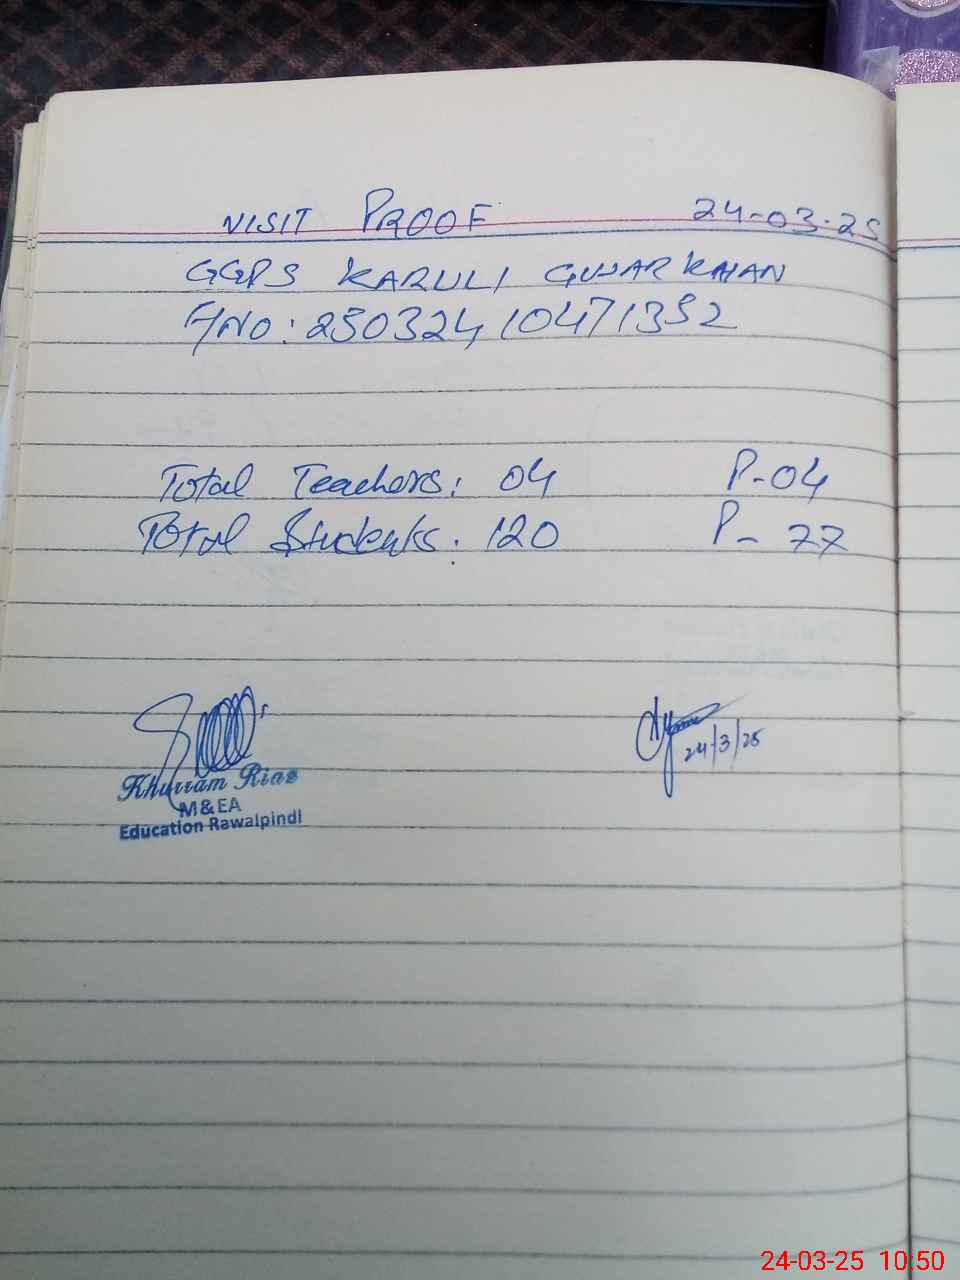 VISIT PROOF 24-03-25
GGPS KARULI GUJAR KHAN
F/NO: 25032410471352
Total Teachers: 04 P-04
Total Students. 120 P- 77
Khurram Riaz
M&EA
Education Rawalpindi
24/3/25
24-03-25 10:50